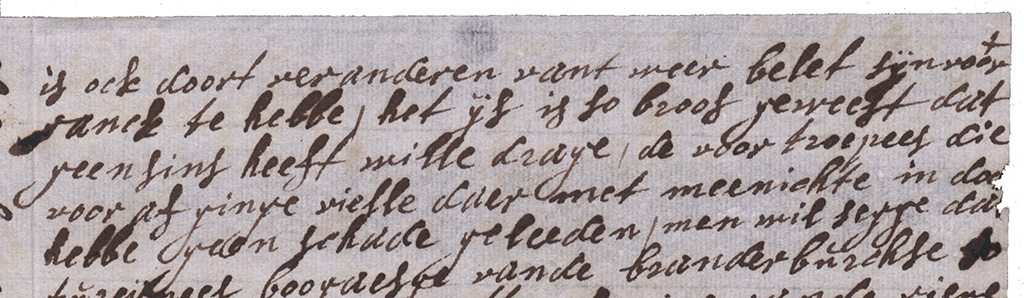 is ock doort veranderen vant weer belet sijn voor
ranck te hebbe, het ijs is so broos geweest dat
geensins heeft wille drage, de voor troepees die
voor af ginge vielle daer met meenichte in
hebbe geen schade geleeden, men wil segge dat
boordesge vande branderburchse